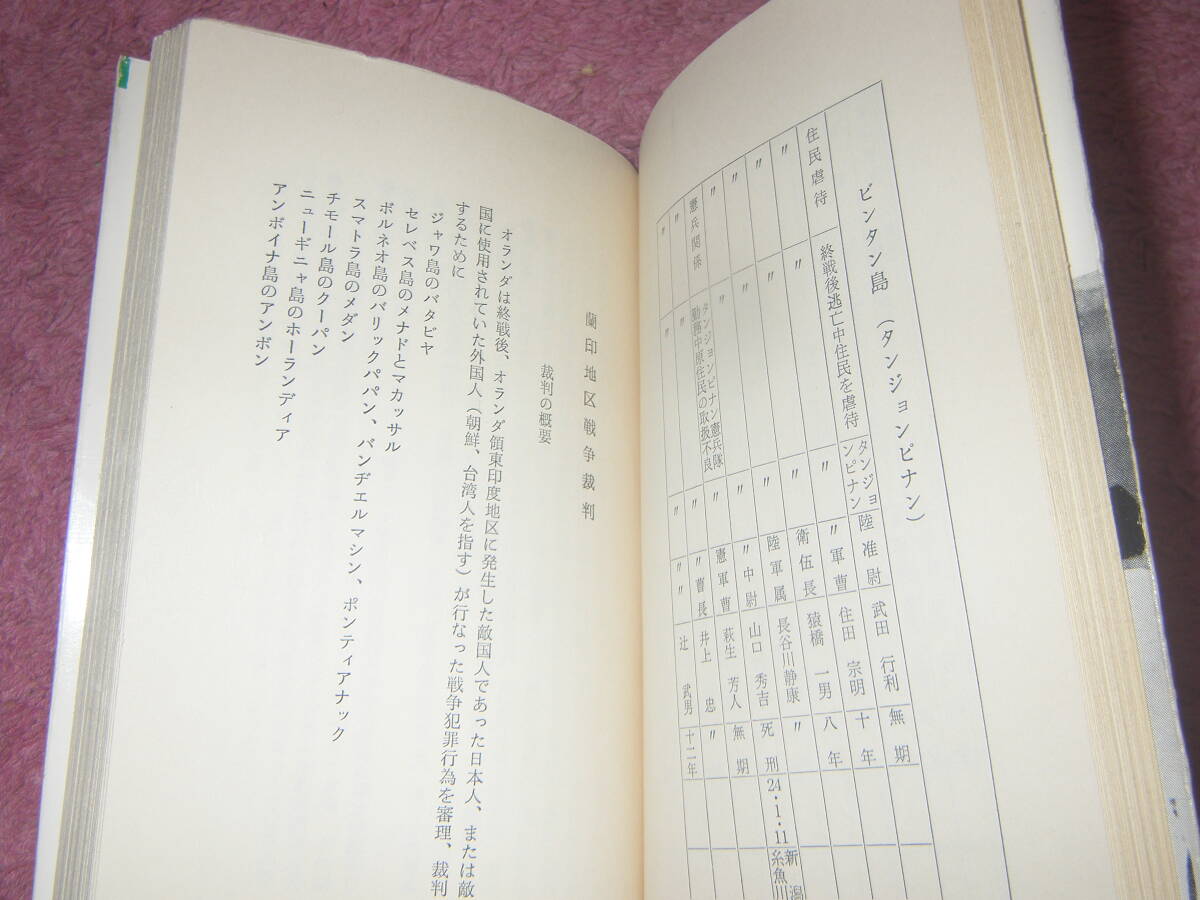 ビンタン島（タンジョンピナン）
住民虐待 終戦後逃亡中住民を虐待 タンジョンピナン 陸准尉 武田行利 無期
〃 〃 〃 〃軍曹 住田宗明 十年
〃 〃 〃 衛伍長 猿橋一男 八年
〃 〃 〃 陸軍属 長谷川静康 〃
〃 〃 〃 〃中尉 山口秀吉 死刑 24・1・11 新潟 糸魚川
憲兵関係 タンジョンピナン憲兵隊勤務中原住民の取扱不良 〃 憲軍曹 萩生芳人 無期
〃 〃 〃 〃曹長 井上忠 〃
〃 〃 〃 〃〃 辻武男 十二年
蘭印地区戦争裁判
裁判の概要
オランダは終戦後、オランダ領東印度地区に発生した敵国人であった日本人、または敵
国に使用されていた外国人（朝鮮、台湾人を指す）が行なった戦争犯罪行為を審理、裁判
するために
ジャワ島のバタビヤ
セレベス島のメナドとマカッサル
ボルネオ島のバリックパパン、バンヂエルマシン、ポンティアナック
スマトラ島のメダン
チモール島のクーパン
ニューギニャ島のホーランディア
アンボイナ島のアンボン